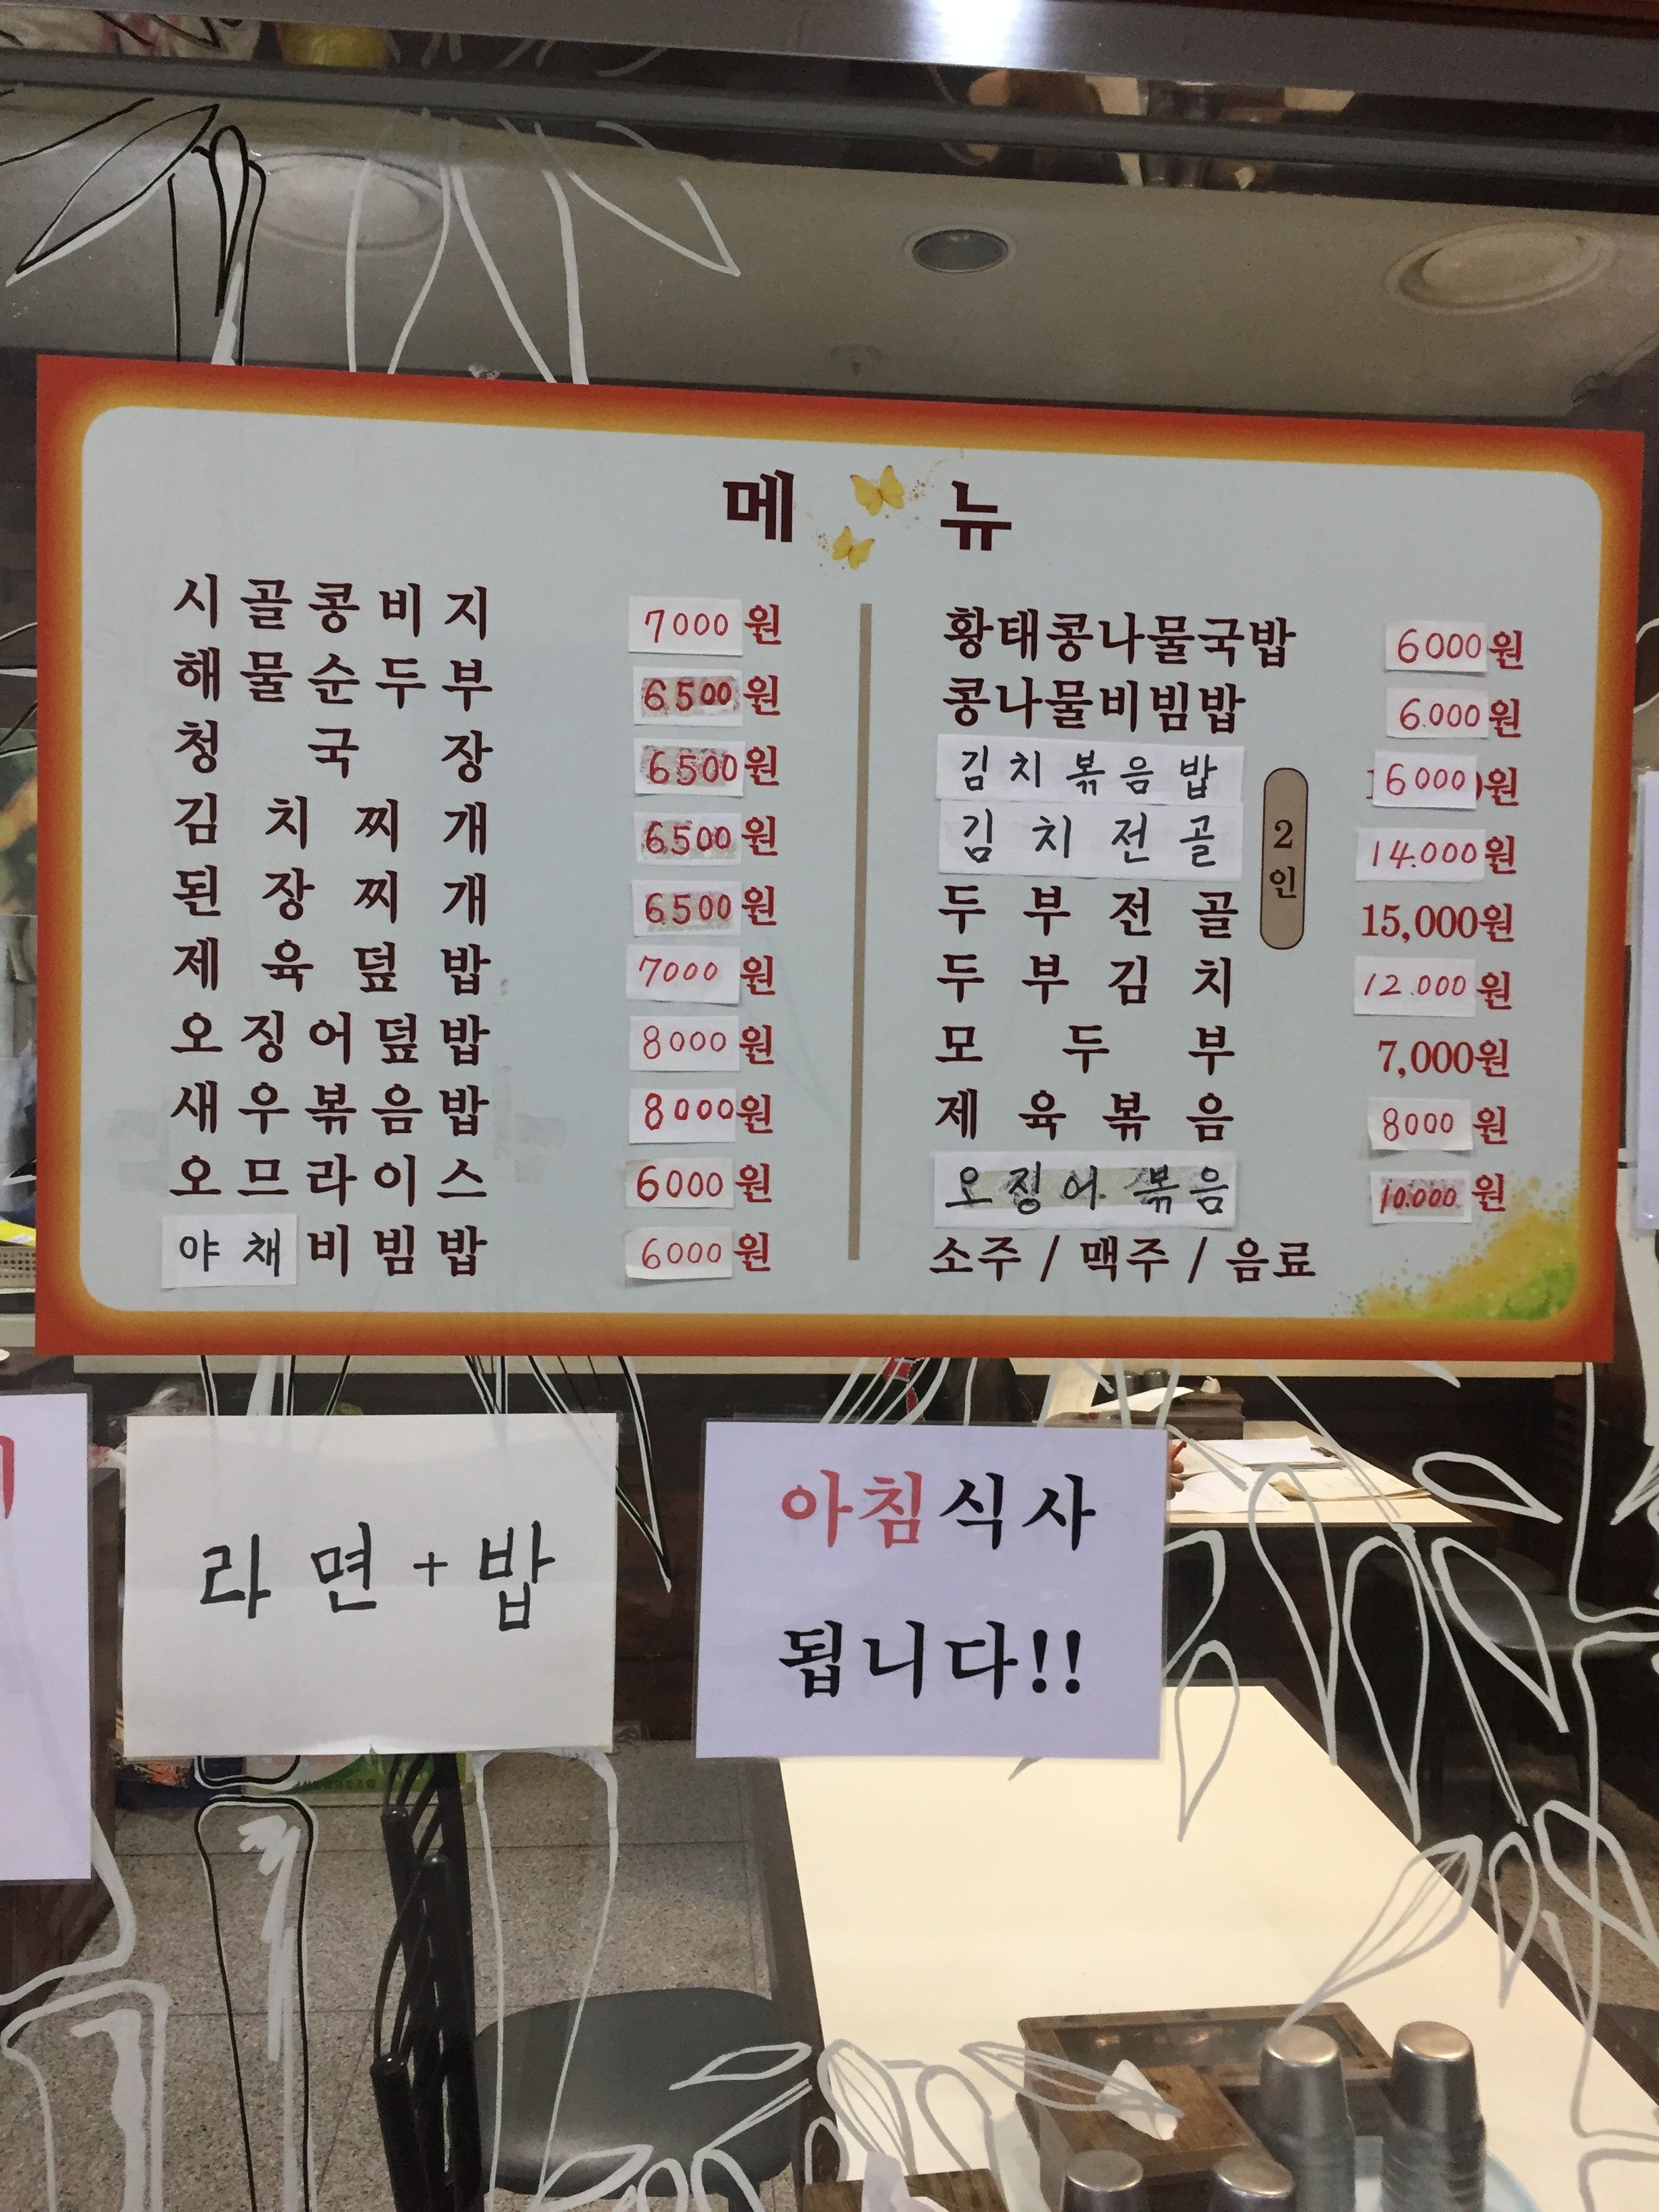 메 뉴
시골콩비지 7000원
해물순두부 6500원
청국장 6500원
김치찌개 6500원
된장찌개 6500원
제육덮밥 7000원
오징어덮밥 8000원
새우볶음밥 8000원
오므라이스 6000원
야채비빔밥 6000원
황태콩나물국밥 6000원
콩나물비빔밥 6.000원
김치볶음밥 6000원
김치전골 14.000원
2인
두부전골 15,000원
두부김치 12.000원
모두부 7,000원
제육볶음 8000원
오징어볶음 10.000원
소주 / 맥주 / 음료
라면+밥
아침식사
됩니다!!